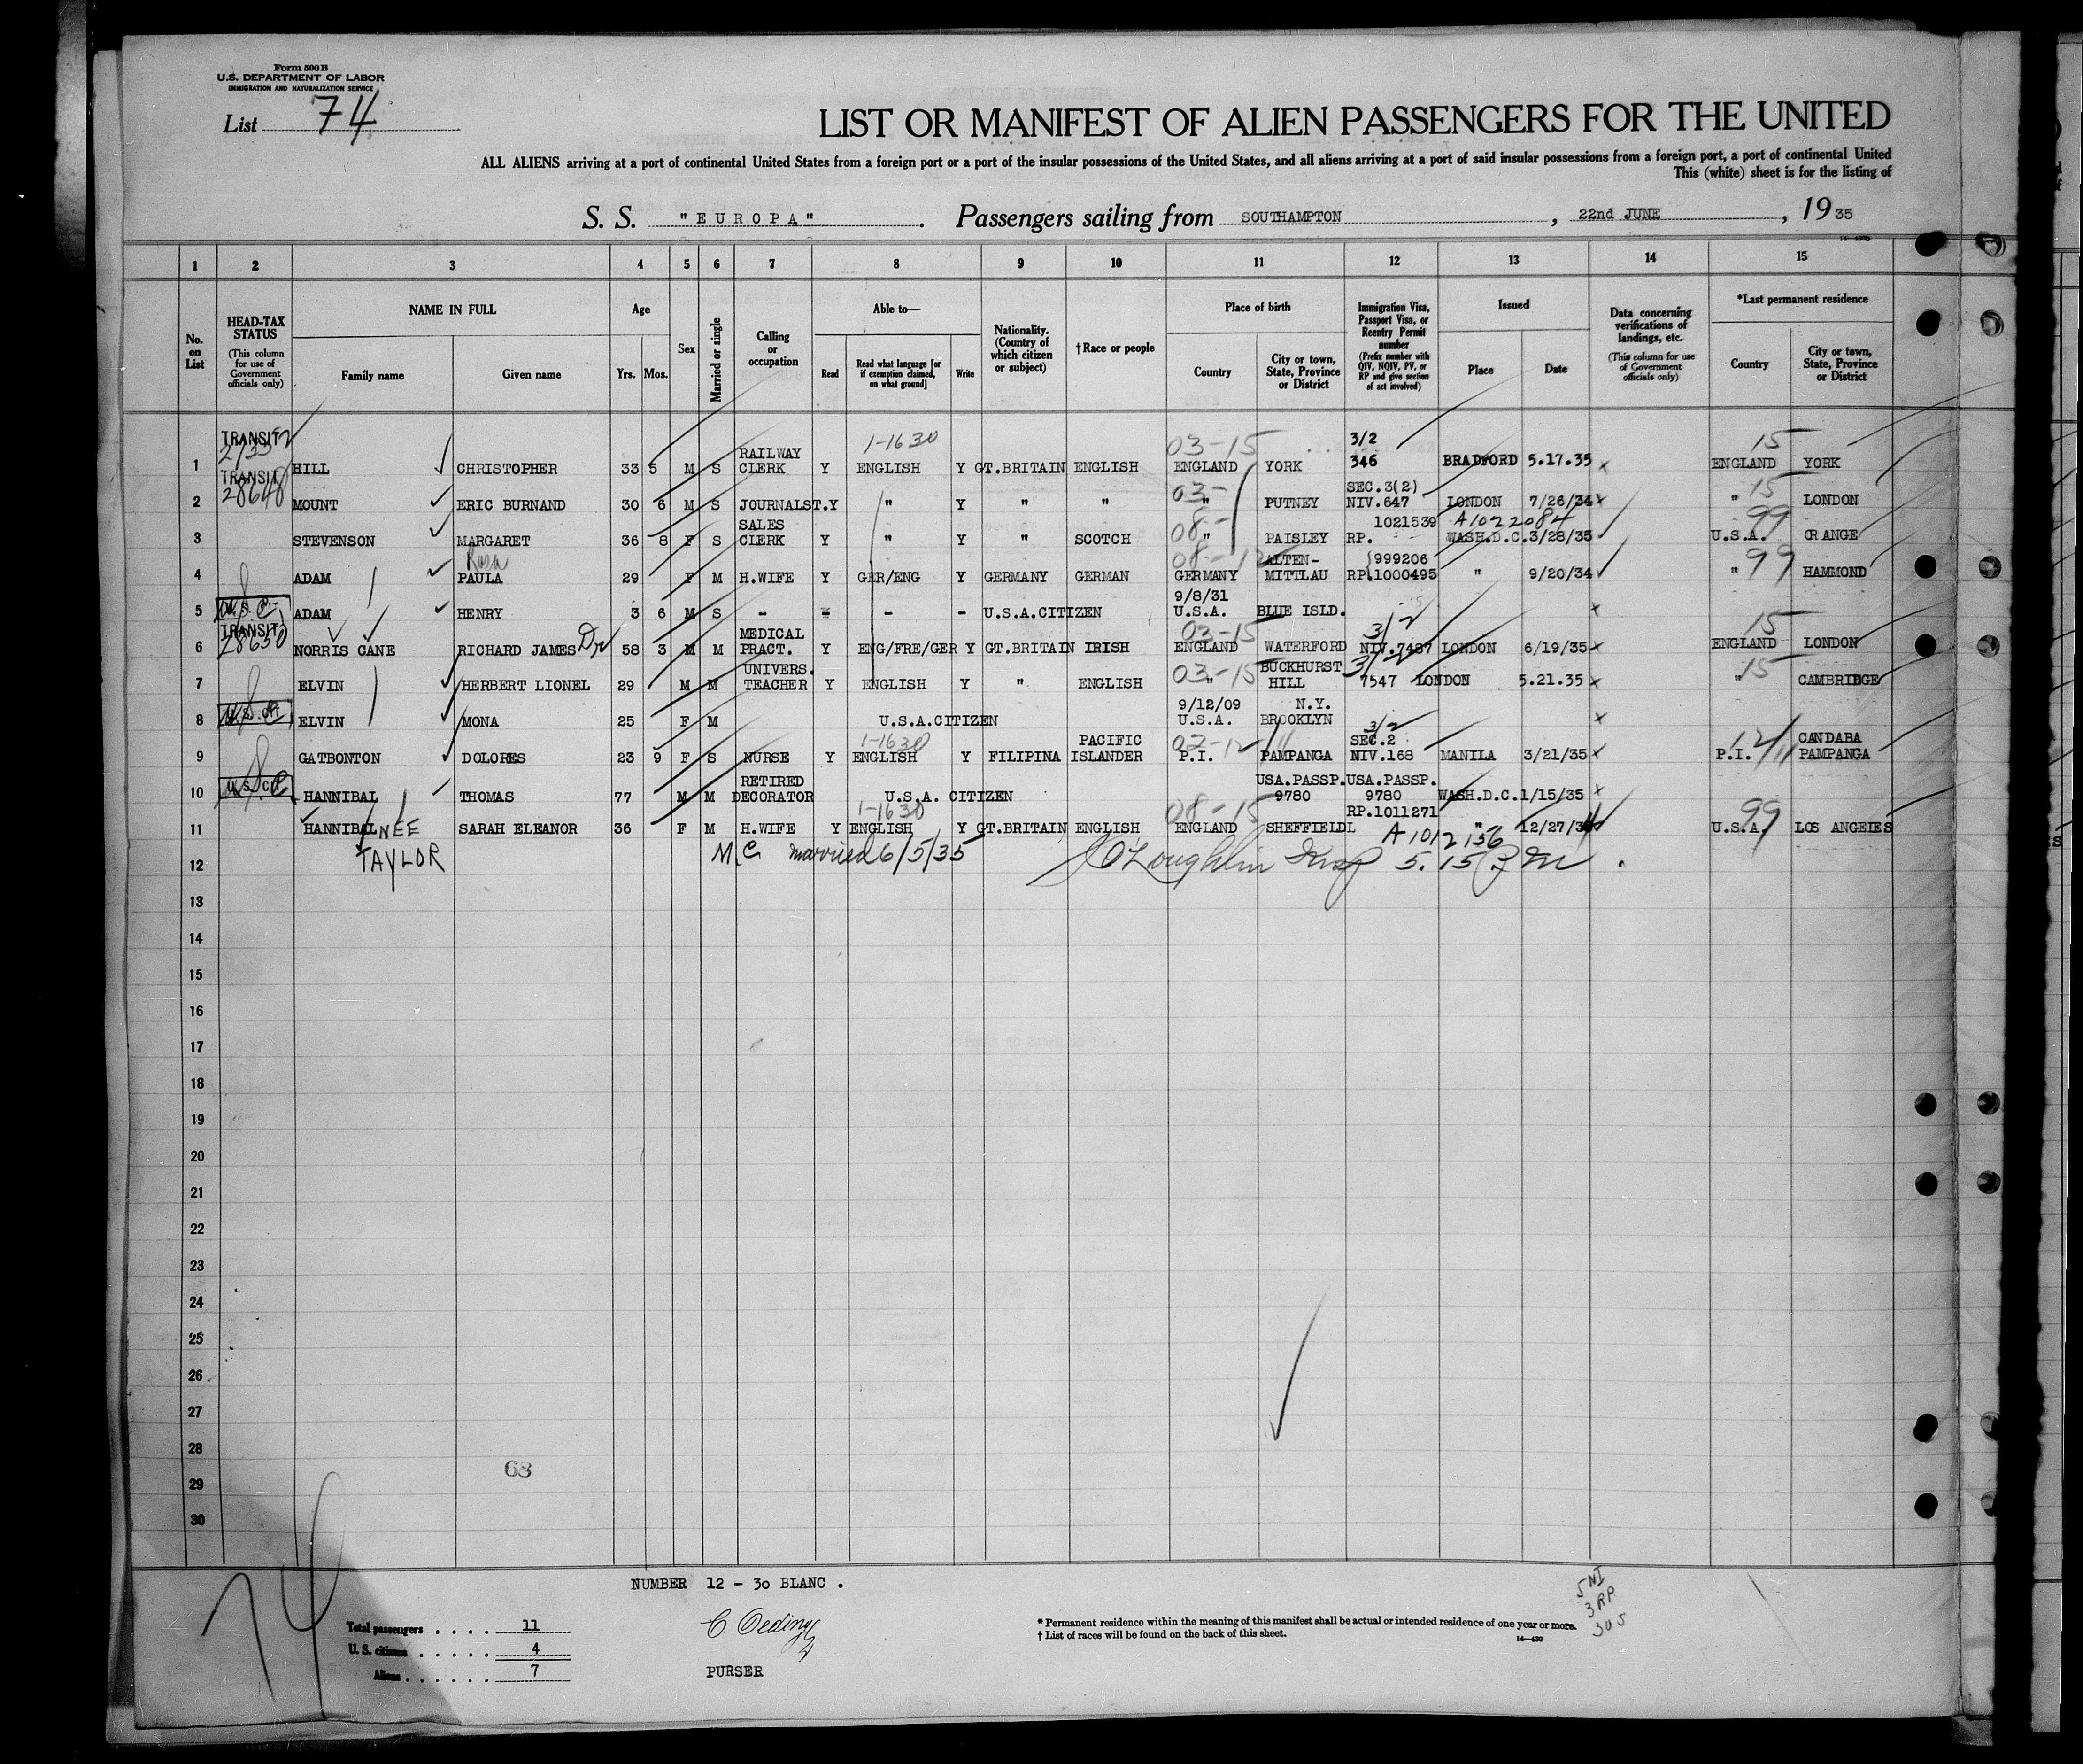 Form 500 B
U.S. DEPARTMENT OF LABOR
IMMIGRATION AND NATURALIZATION SERVICE
List 74
LIST OR MANIFEST OF ALIEN PASSENGERS FOR THE UNITED
ALL ALIENS arriving at a port of continental United States from a foreign port or a port of the insular possessions of the United States, and all aliens arriving at a port of said insular possessions from a foreign port, a port of continental United
This (white) sheet is for the listing of
S. S. "EUROPA". Passengers sailing from SOUTHAMPTON, 22nd JUNE, 1935
1 2 3 4 5 6 7 8 9 10 11 12 13 14 15
No. on List
HEAD-TAX STATUS (This column for use of Government officials only)
NAME IN FULL
Family name Given name
Age
Yrs. Mos.
Sex
Married or single
Calling or occupation
Able to—
Read Read what language [or if exemption claimed, on what ground] Write
Nationality. (Country of which citizen or subject)
†Race or people
Place of birth
Country City or town, State, Province or District
Immigration Visa, Passport Visa, or Reentry Permit number (Prefix number with QIV, NQIV, PV, or RP and give section of act involved)
Issued
Place Date
Data concerning verifications of landings, etc. (This column for use of Government officials only)
*Last permanent residence
Country City or town, State, Province or District
TRANSIT RAILWAY 1-1630 03-15 3/2 15
1 HILL CHRISTOPHER 33 5 M S CLERK Y ENGLISH Y GT.BRITAIN ENGLISH ENGLAND YORK 346 BRADFORD 5.17.35 x ENGLAND YORK
TRANSIT 28648 03- SEC.3(2) 15
2 MOUNT ERIC BURNAND 30 6 M S JOURNALST. Y " Y " " " PUTNEY NIV.647 LONDON 7/26/34 x " LONDON
SALES 08- 1021539 A1022084 99
3 STEVENSON MARGARET 36 8 F S CLERK Y " Y " SCOTCH " PAISLEY RP. WASH.D.C. 3/28/35 U.S.A. ORANGE
Rosa 08-12 ALTEN- 999206 99
4 ADAM PAULA 29 F M H.WIFE Y GER/ENG Y GERMANY GERMAN GERMANY MITTLAU RP.1000495 " 9/20/34 " HAMMOND
U.S.C. 9/8/31
5 ADAM HENRY 3 6 M S - - - - U.S.A.CITIZEN U.S.A. BLUE ISLD. x
TRANSIT 28650 Dr MEDICAL 03-15 3/2 15
6 NORRIS CANE RICHARD JAMES 58 3 M M PRACT. Y ENG/FRE/GER Y GT.BRITAIN IRISH ENGLAND WATERFORD NIV.7487 LONDON 6/19/35 x ENGLAND LONDON
UNIVERS. 03-15 BUCKHURST 3/2 15
7 ELVIN HERBERT LIONEL 29 M M TEACHER Y ENGLISH Y " ENGLISH " HILL 7547 LONDON 5.21.35 x " CAMBRIDGE
9/12/09 N.Y.
8 ELVIN MONA 25 F M U.S.A.CITIZEN U.S.A. BROOKLYN x
1-1630 PACIFIC 02-12/11 3/2 SEC.2 12/11 CANDABA
9 GATBONTON DOLORES 23 9 F S NURSE Y ENGLISH Y FILIPINA ISLANDER P.I. PAMPANGA NIV.168 MANILA 3/21/35 x P.I. PAMPANGA
U.S. CIT RETIRED USA.PASSP. USA.PASSP.
10 HANNIBAL THOMAS 77 M M DECORATOR U.S.A. CITIZEN 9780 9780 WASH.D.C. 1/15/35 x
1-1630 08-15 RP.1011271 99
11 HANNIBAL SARAH ELEANOR 36 F M H.WIFE Y ENGLISH Y GT.BRITAIN ENGLISH ENGLAND SHEFFIELD " 12/27/34 U.S.A. LOS ANGELES
NEE TAYLOR M.C. married 6/5/35 A 1012156
12 O'Loughlin Insp 5.15 PM.
13
14
15
16
17
18
19
20
21
22
23
24
25
26
27
28
29
30
68
74
NUMBER 12 - 30 BLANC .
Total passengers . . . . . 11
U. S. citizens . . . . . 4
Aliens . . . . . . 7
PURSER
* Permanent residence within the meaning of this manifest shall be actual or intended residence of one year or more.
† List of races will be found on the back of this sheet.
14—430
5 NI
3 RP